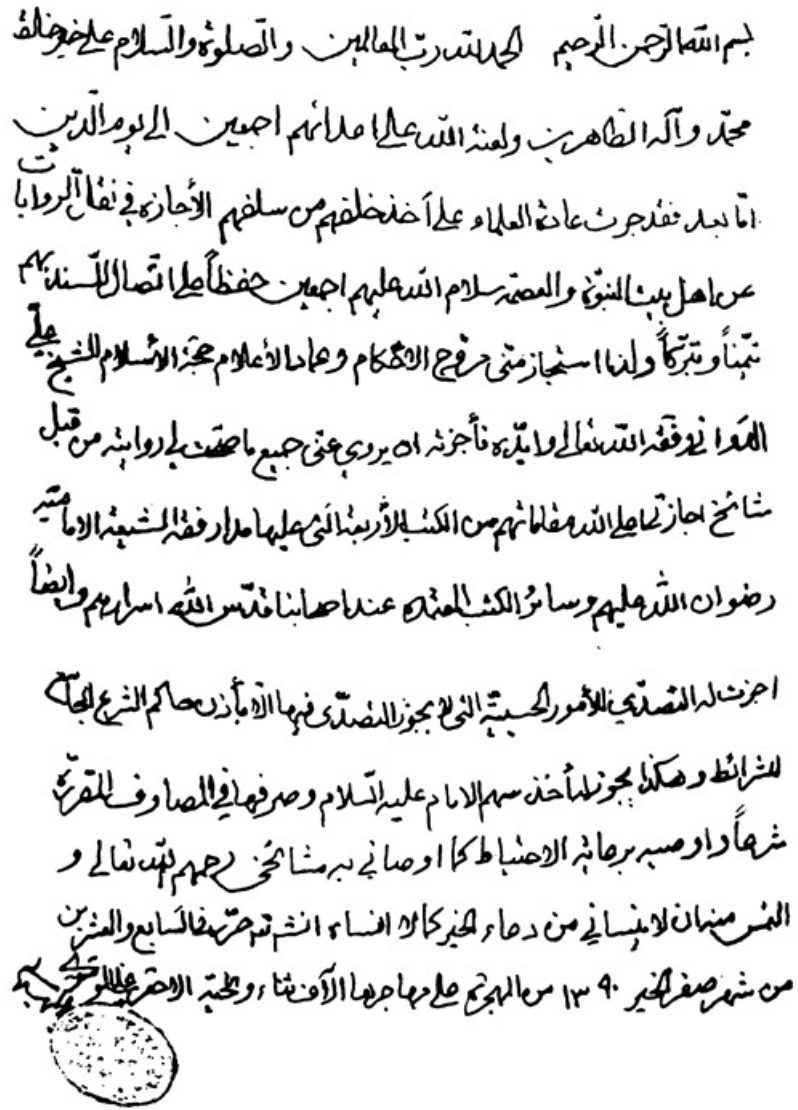 بسم الله الرحمن الرحيم الحمد لله رب العالمين والصلوة والسلام على خير خلقه
محمّد وآله الطاهرين ولعنة الله على اعدائهم اجمعين الى يوم الدين
امّا بعد فقد جرت عادة العلماء على أخذ خلفهم من سلفهم الأجازة في نقل الروايات
عن اهل بيت النبوّة والعصمة سلام الله عليهم اجمعين حفظاً على اتّصال السند بهم
تيمّناً وتبرّكاً ولذا استجاز منّي مروّج الاحكام وعماد الأعلام حجّة الاسلام الشيخ علي
وفّقه الله تعالى وايّده فأجزته ان يروي عنّي جميع ما صحّت لي روايته من قبل
مشائخ اجازتي اعلى الله مقاماتهم من الكتب الأربعة الّتي عليها مدار فقه الشيعة الاماميّة
رضوان الله عليهم وسائر الكتب المعتمدة عند اصحابنا قدّس الله اسرارهم وايضاً
اجزت له التصدّي للأمور الحسبيّة التي لا يجوز التصدّى فيها الّا بأذن حاكم الشرع الجامع
للشرائط وهكذا يجوز له أخذ سهم الامام عليه السّلام وصرفها في المصارف المقرّرة
شرعاً واوصيه برعاية الاحتياط كما اوصاني به مشائخي رحمهم الله تعالى و
التمس منه ان لا ينساني من دعاء الخير كما لا انساه انشاء الله حرّر في السابع والعشرين
من شهر صفر الخير ١٣٩٠ من الهجرة على مهاجرها الآف ثناء وتحيّة الاحقر